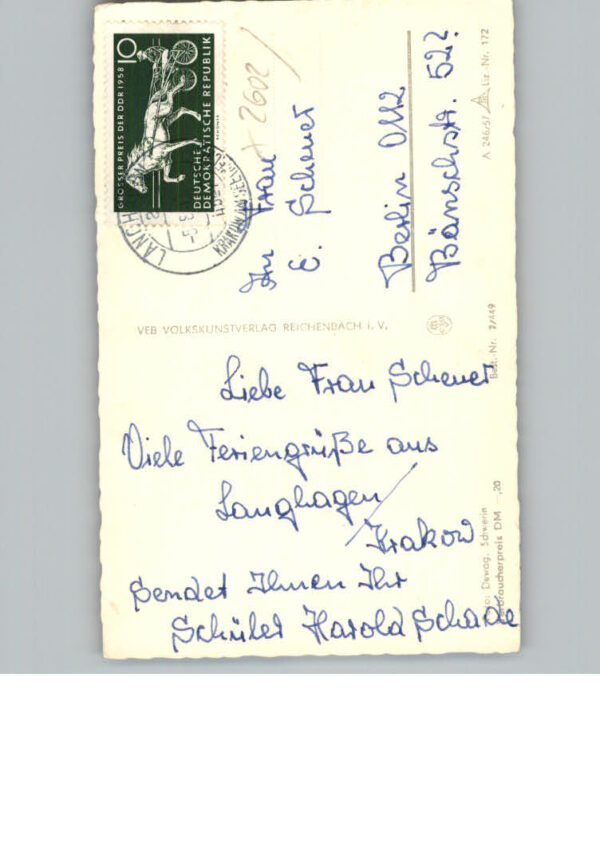 GROSSER PREIS DER DDR 1958
10
DEUTSCHE
DEMOKRATISCHE REPUBLIK
+ 2602
An Frau
E. Scheuer
Berlin O112
Bänschstr. 52??
A 246/57 Liz.-Nr. 172
VEB VOLKSKUNSTVERLAG REICHENBACH i. V.
Best.-Nr. 2/449
Liebe Frau Scheuer
Viele Feriengrüße aus
Langhagen/
Krakow
sendet Ihnen Ihr
Schüler Harold Schade
Dewag, Schwerin
Verbraucherpreis DM -,20